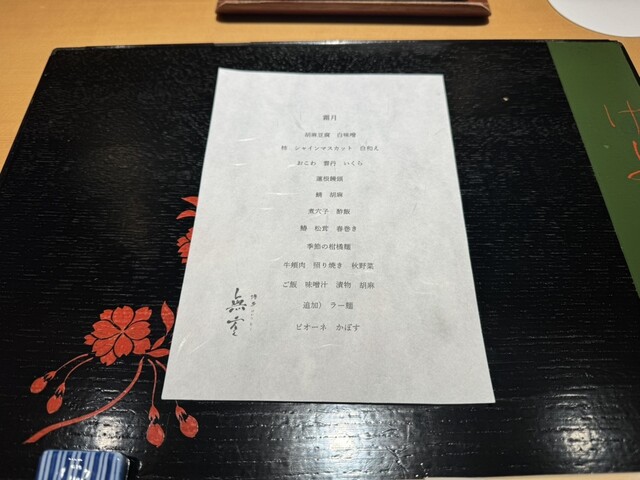 胡麻豆腐 白味噌
柿 シャインマスカット 白和え
おこわ 銀杏 いくら
蓮根饅頭
鯖 胡麻
煮穴子 酢飯
鱧 松茸 春巻き
季節の柑橘麺
牛頬肉 照り焼き 秋野菜
ご飯 味噌汁 漬物 胡麻
追加) ラー麺
ピオーネ かぼす
博多
無常